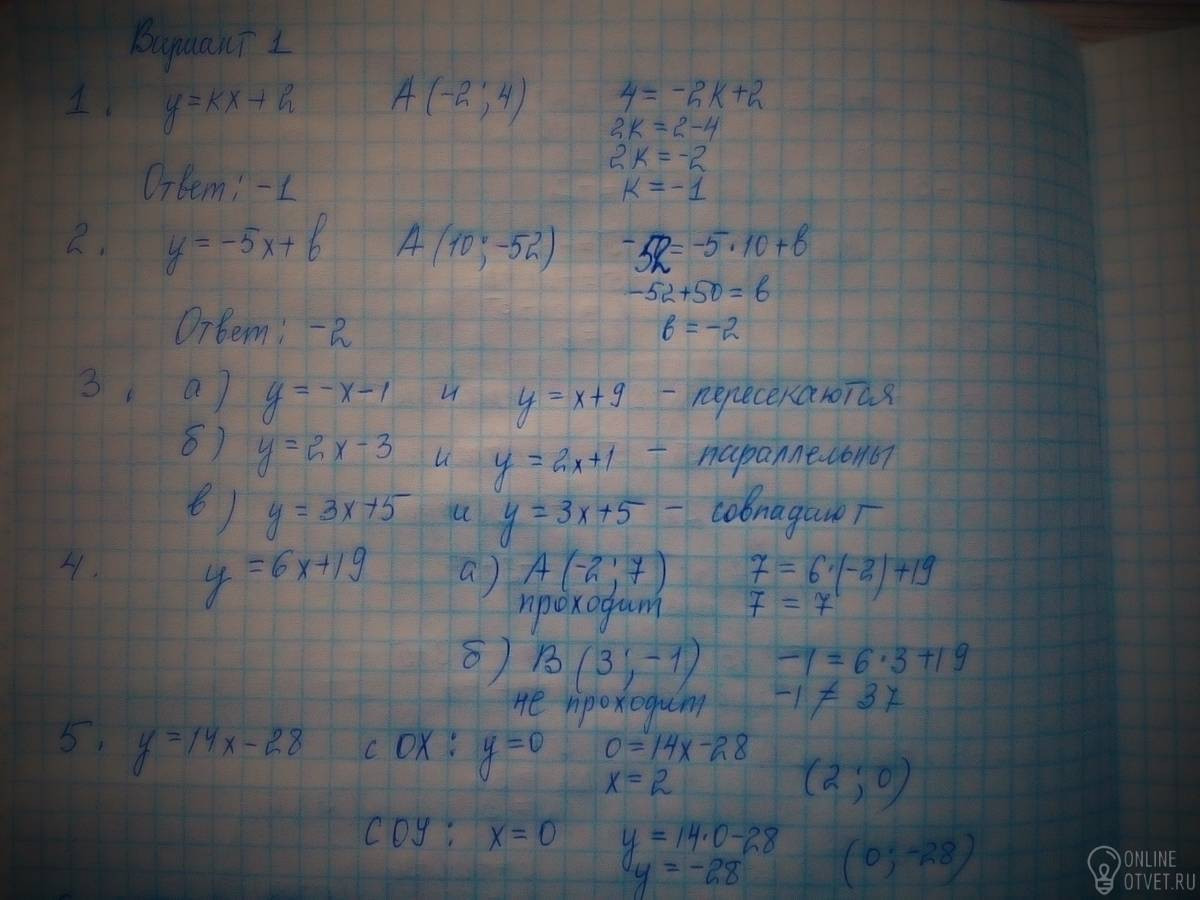 Вариант 1
1. y=kx+2 A(-2;4) 4=-2k+2
2k=2-4
2k=-2
Ответ: -1 k=-1
2. y=-5x+b A(10;-52) -52=-5·10+b
-52+50=b
Ответ: -2 b=-2
3. а) y=-x-1 и y=x+9 - пересекаются
б) y=2x-3 и y=2x+1 - параллельны
в) y=3x+5 и y=3x+5 - совпадают
4. y=6x+19 а) A(-2;7) 7=6·(-2)+19
проходит 7=7
б) B(3;-1) -1=6·3+19
не проходит -1≠37
5. y=14x-28 с OX: y=0 0=14x-28
x=2 (2;0)
с OY: x=0 y=14·0-28
y=-28 (0;-28)
ONLINE
OTVET.RU